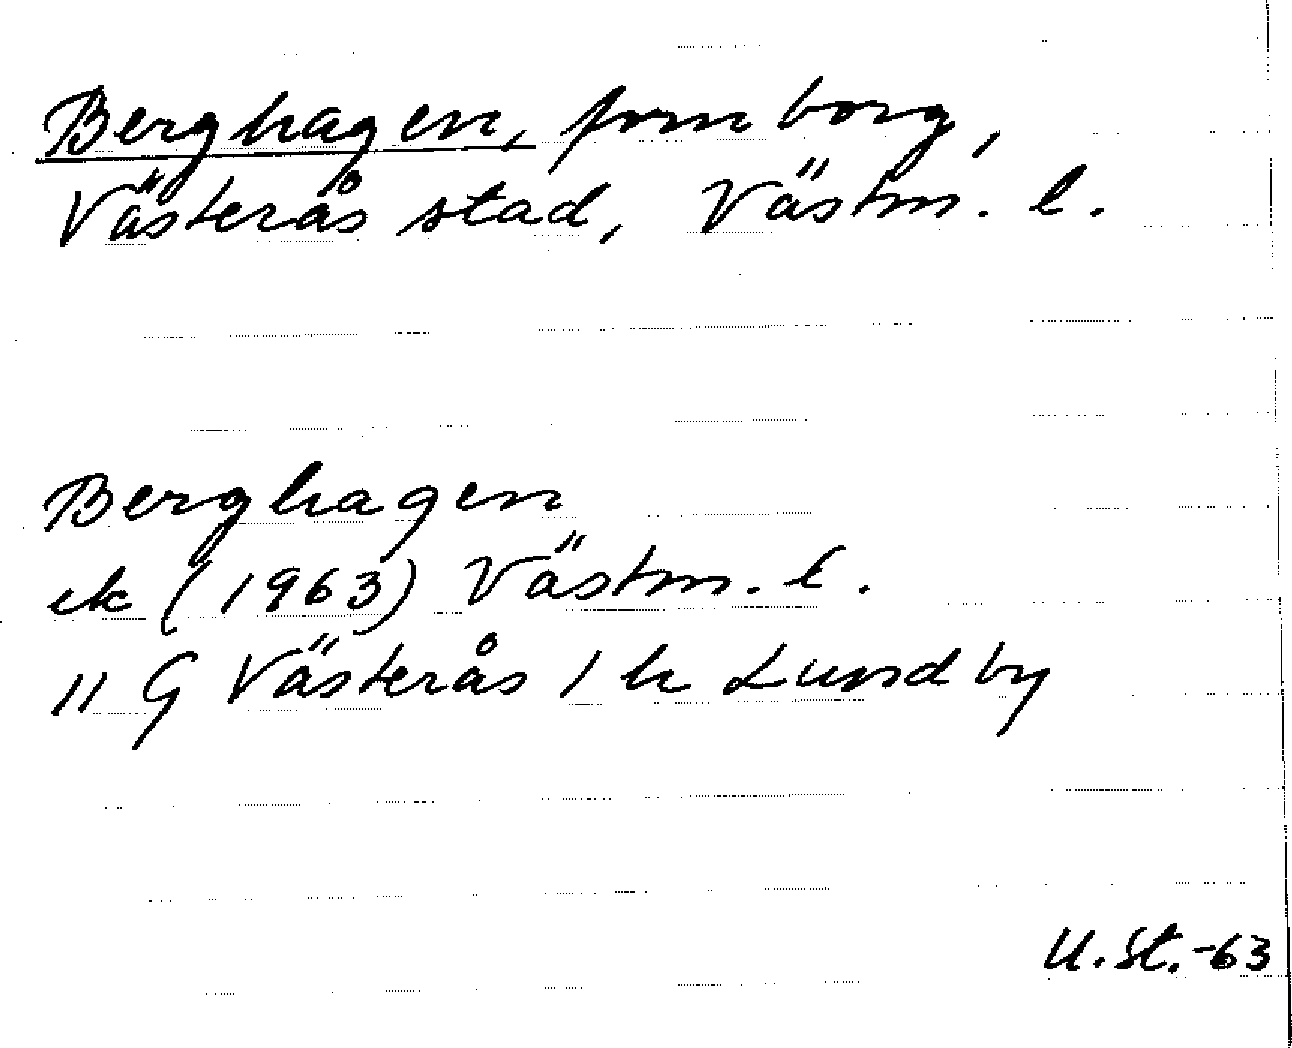 Berghagen, fornborg,
Västerås stad, Västm. l.
Berghagen
ek (1963) Västm. l.
11 G Västerås 1 h Lundby
U. St. -63